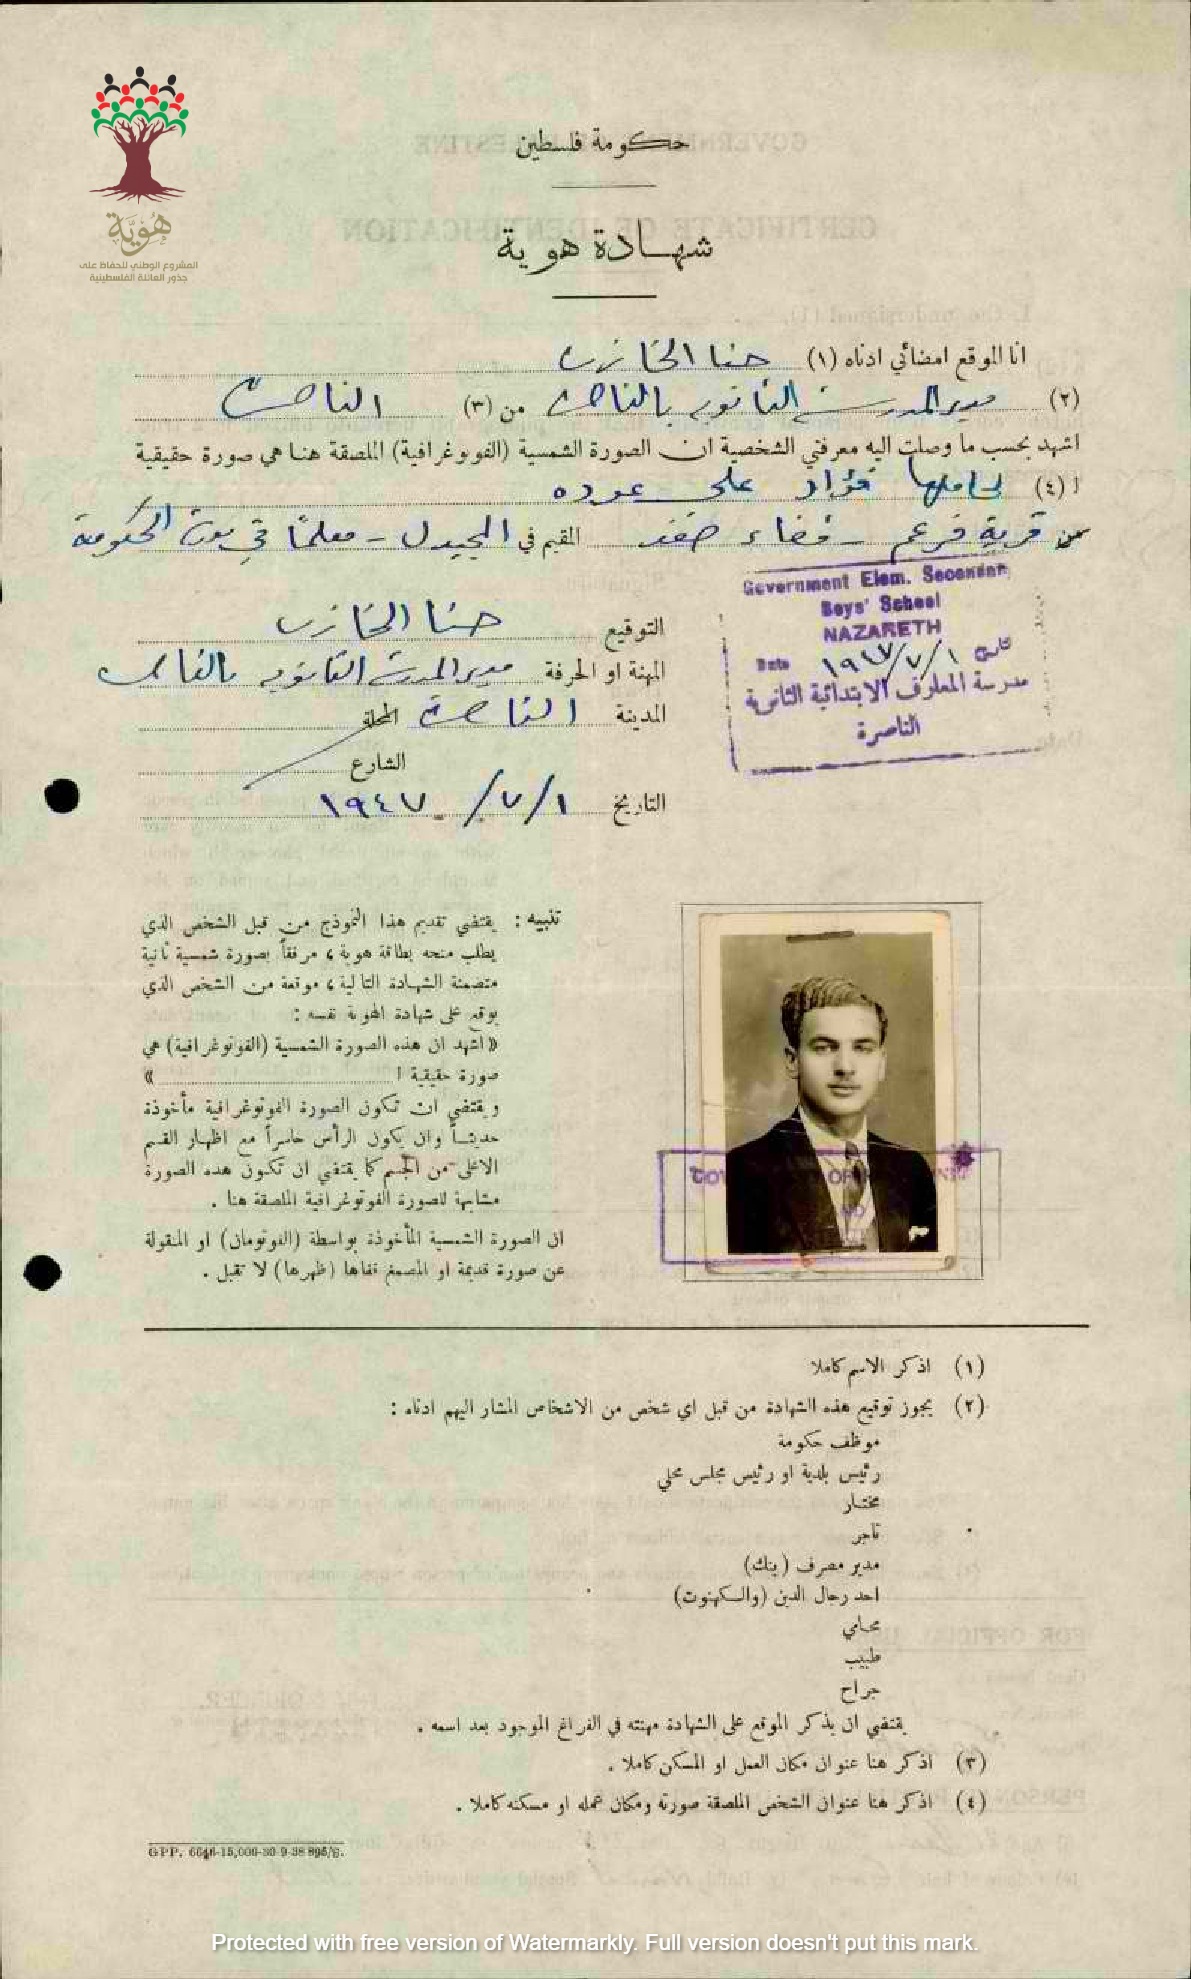 هُوِيَّة
المشروع الوطني للحفاظ على
جذور العائلة الفلسطينية
حكومة فلسطين
شهادة هوية
انا الموقع امضائي ادناه (١) حنا الخازن
(٢) مدير المدرسة الثانوية بالناصرة من (٣) الناصرة
اشهد بحسب ما وصلت اليه معرفتي الشخصية ان الصورة الشمسية (الفوتوغرافية) الملصقة هنا هي صورة حقيقية
ا (٤) لحاملها فؤاد علي عوده
من قرية فرعم - قضاء صفد المقيم في المجيدل - معلمًا في الحكومة
Government Elem. Secondary
Boys' School
NAZARETH
Date ١٩٤٧/٧/١ تاريخ
مدرسة المعارف الابتدائية الثانوية
الناصرة
التوقيع حنا الخازن
المهنة او الحرفة مدير المدرسة الثانوية بالناصرة
المدينة الناصرة المحلة
الشارع
التاريخ ١/٧/١٩٤٧
تنبيه : يقتضي تقديم هذا النموذج من قبل الشخص الذي
يطلب منحه بطاقة هوية ، مرفقاً بصورة شمسية ثانية
متضمنة الشهادة التالية ، موقعة من الشخص الذي
يوقع على شهادة الهوية نفسه :
« اشهد ان هذه الصورة الشمسية (الفوتوغرافية) هي
صورة حقيقية ا »
ويقتضي ان تكون الصورة الفوتوغرافية مأخوذة
حديثاً وان يكون الرأس حاسراً مع اظهار القسم
الاعلى من الجسم كما يقتضي ان تكون هذه الصورة
مشابهة للصورة الفوتوغرافية الملصقة هنا .
ان الصورة الشمسية المأخوذة بواسطة (الفوتومان) او المنقولة
عن صورة قديمة او المصمغ قفاها (ظهرها) لا تقبل .
(١) اذكر الاسم كاملا
(٢) يجوز توقيع هذه الشهادة من قبل اي شخص من الاشخاص المشار اليهم ادناه :
موظف حكومة
رئيس بلدية او رئيس مجلس محلي
مختار
تاجر
مدير مصرف (بنك)
احد رجال الدين (والكهنوت)
محامي
طبيب
جراح
يقتضي ان يذكر الموقع على الشهادة مهنته في الفراغ الموجود بعد اسمه .
(٣) اذكر هنا عنوان مكان العمل او المسكن كاملا .
(٤) اذكر هنا عنوان الشخص الملصقة صورته ومكان عمله او مسكنه كاملا .
GPP. 6646-15,000-30-9-38 895/S.
Protected with free version of Watermarkly. Full version doesn't put this mark.